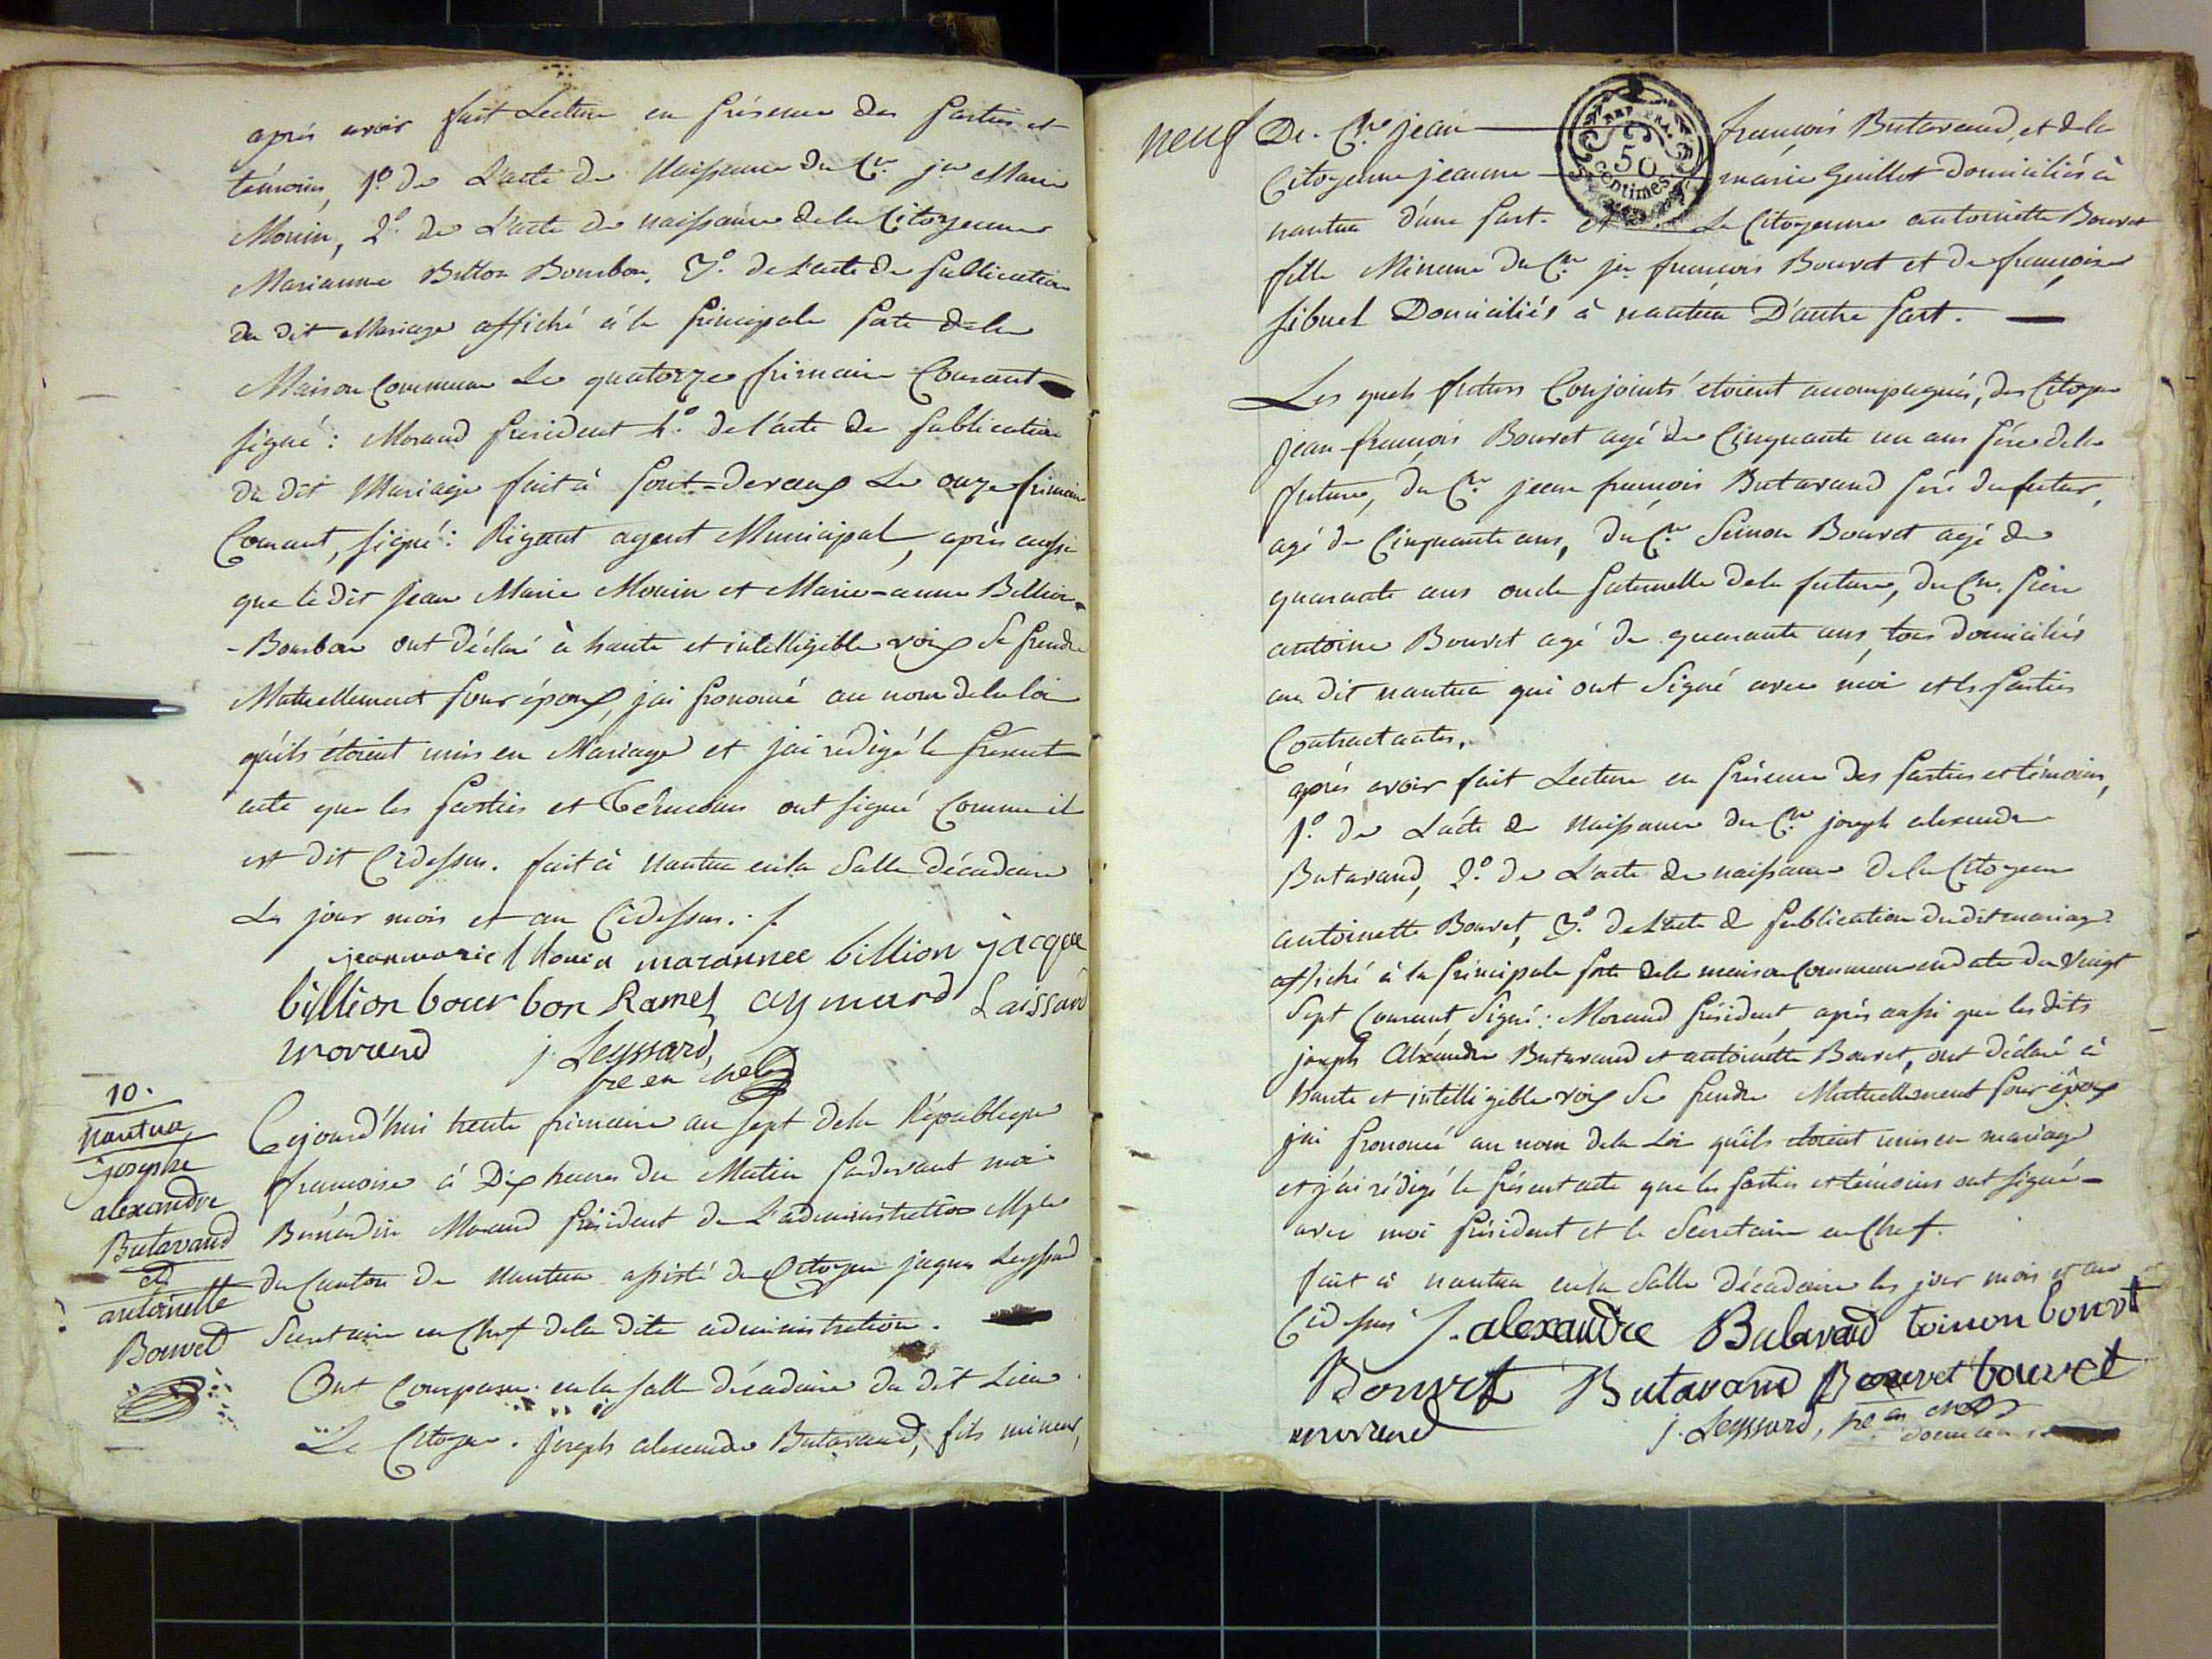 après avoir fait Lecture en présence des parties et
témoins, 1.º de L'acte de Naissance du C.en j.n Marie
Monin, 2.º de L'acte de naissance de la Citoyenne
Marianne Billon Bourbon, 3.º de L'acte de publication
du dit Mariage affiché à la principale porte de la
Maison Commune Le quatorze frimaire Courant
signé : Morand président 4.º de l'acte de publication
du dit Mariage fait à le onze frimaire
Courant, signé : agent Municipal, après aussi
que le dit Jean Marie Monin et Marie-anne Billion-
-Bourbon ont déclaré à haute et intelligible voix se prendre
Mutuellement pour époux, j'ai prononcé au nom de la loi
qu'ils étoient unis en Mariage et j'ai rédigé le présent
acte que les parties et Témoins ont signé Comme il
est dit Cidessus. fait à Nantua en la Salle décadaire
Les jour mois et an Cidessus. ./.
jeanmarie Monin marannee billion jacque
billion bourbon Ramel aymard Laissard
morand j. Leyssard,
sre en chef
10.
Nantua
joseph
alexandre
Butavand
et
antoinette
Bouvet
Cejourd'hui trente frimaire an sept de la République
françoise à Dix heures du Matin pardevant moi
Bernardin Morand président de L'administration Mple
du Canton de Nantua assisté du Citoyen jaques Leyssard
Secretaire en Chef de la dite administration.
Ont Comparu en la salle décadaire du dit Lieu
Le Citoyen joseph alexandre Butavand, fils mineur,
neuf
De C.en jean françois Butavand, et de la
Citoyenne jeanne marie Guillot domiciliés à
nantua d'une part. et La Citoyenne antoinette Bouvet
fille Mineure du C.en jn françois Bouvet et de françoise
sibuet Domiciliés à nantua D'autre part.
Les quels futurs Conjoints étoient acompagnés, des Citoyen
jean françois Bouvet agé de Cinquante un ans père de la
future, du C.en jean françois Butavand père du futur,
agé de Cinquante ans, du C.en Simon Bouvet agé de
quarante ans oncle paternelle de la future, du C.en Piere
antoine Bouvet agé de quarante ans, tous domiciliés
au dit nantua qui ont Signé avec moi et les parties
Contractantes.
après avoir fait Lecture en présence des parties et témoins,
1.º de L'acte de Naissance du C.en joseph alexandre
Butavand, 2.º de L'acte de naissance de la Citoyenne
antoinette Bouvet, 3.º de L'acte de publication du dit mariage
affiché à la principale porte de la maison Commune en date du vingt
Sept Courant Signé : Morand président, après aussi que les dits
joseph Aléxandre Butavand et antoinétte Bouvet, ont déclaré à
haute et intelligible voix Se prendre Mutuellement pour époux
j'ai prononcé au nom de la Loi qu'ils étoient unis en mariage
et j'ai rédigé le présent acte que les parties et témoins ont signé
avec moi président et le Secretaire en Chef.
fait à nantua en la Salle décadaire les jour mois et an
Cidessus J. alexandre Butavand toinon bouvet
Bouvet Butavand Bouvet bouvet
morand j. Leyssard, sre en chef
REP. FRA.
50
Centimes